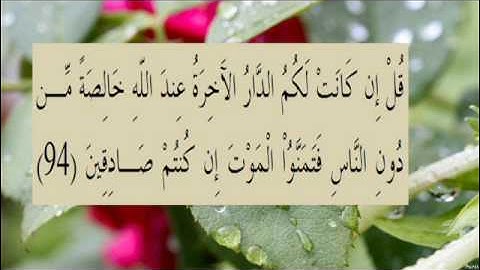 قُلْ إِن كَانَتْ لَكُمُ الدَّارُ الْآخِرَةُ عِندَ اللَّهِ خَالِصَةً مِّـــن
دُونِ النَّاسِ فَتَمَنَّوُاْ الْمَوْتَ إِن كُنتُمْ صَـــادِقِينَ (94)